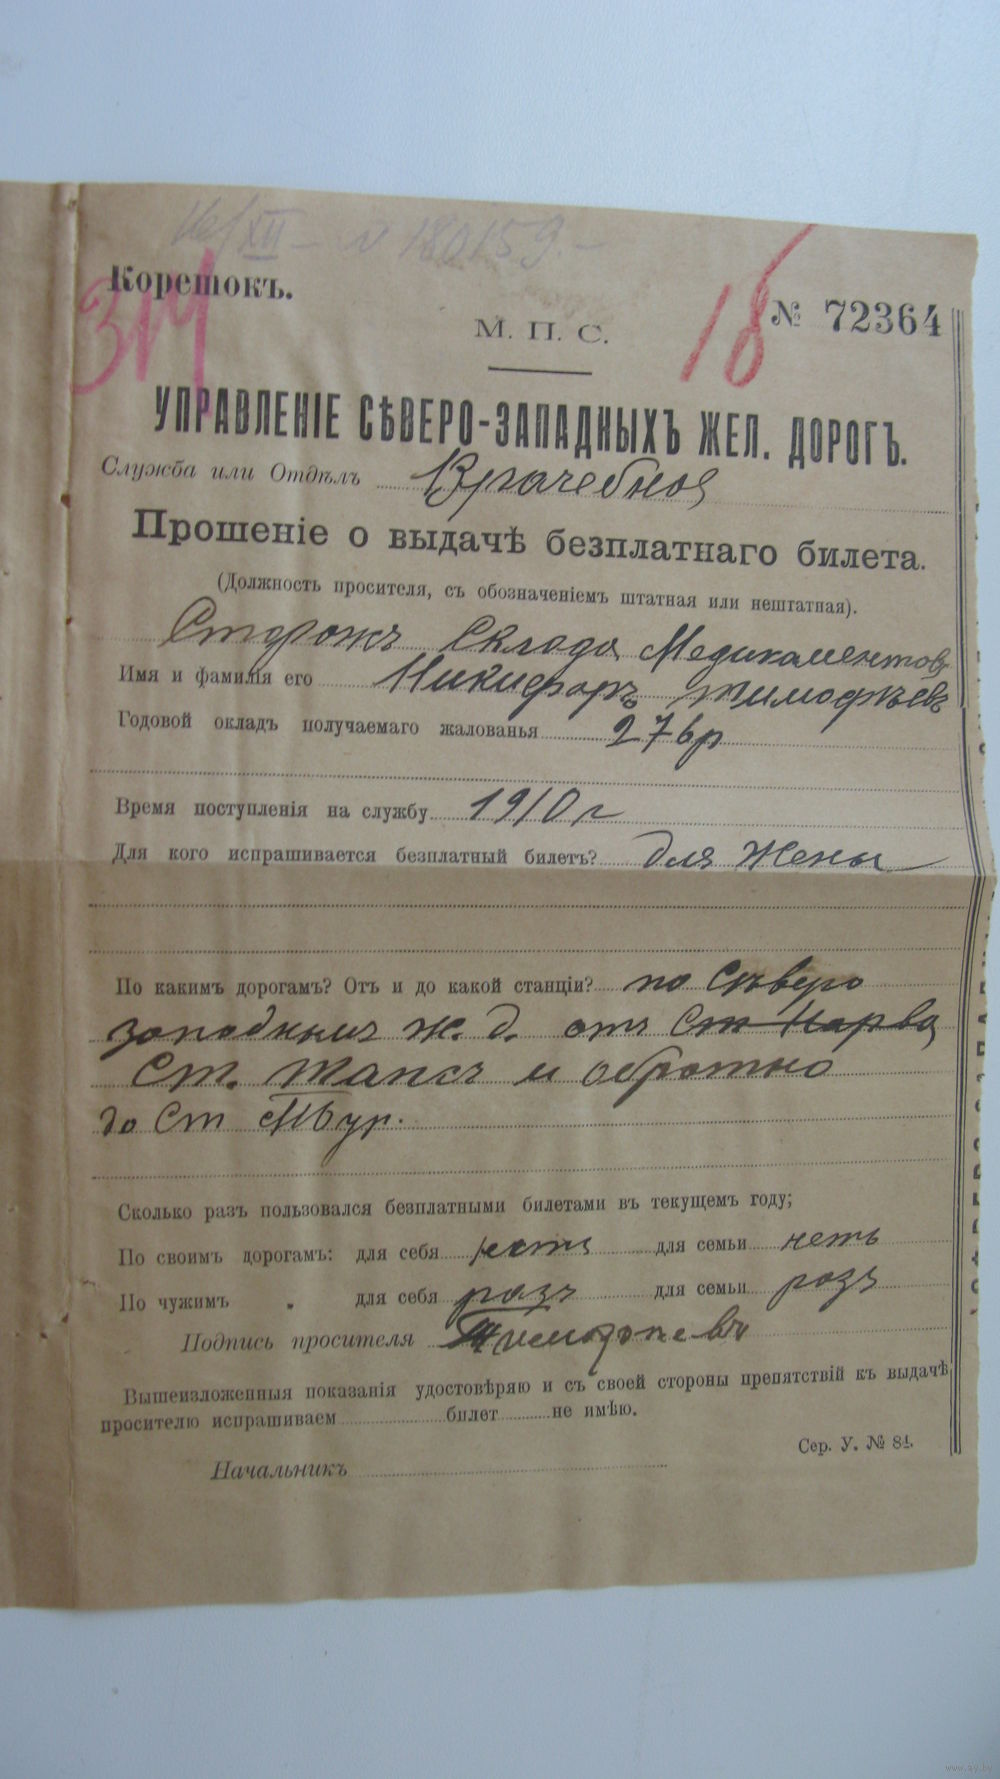 16/XII - № 180159. -
Корешокъ.
314
18
№ 72364
М. П. С.
УПРАВЛЕНІЕ СѢВЕРО-ЗАПАДНЫХЪ ЖЕЛ. ДОРОГЪ.
Служба или Отдѣлъ Врачебная
Прошеніе о выдачѣ безплатнаго билета.
(Должность просителя, съ обозначеніемъ штатная или нештатная).
Сторожъ Склада Медикаментовъ
Имя и фамилія его Никифоръ Тимофѣевъ
Годовой окладъ получаемаго жалованья 276 р
Время поступленія на службу 1910 г
Для кого испрашивается безплатный билетъ? для Жены
По какимъ дорогамъ? Отъ и до какой станціи? по Сѣверо
западнымъ ж. д. отъ Ст Нарва
Ст. Тапсъ и обратно
до Ст
Сколько разъ пользовался безплатными билетами въ текущемъ году;
По своимъ дорогамъ: для себя для семьи нетъ
По чужимъ " для себя разъ для семьи разъ
Подпись просителя Тимофеевъ
Вышеизложенныя показанія удостовѣряю и съ своей стороны препятствій къ выдачѣ
просителю испрашиваем билет не имѣю.
Сер. У. № 84.
Начальникъ
www.ay.by